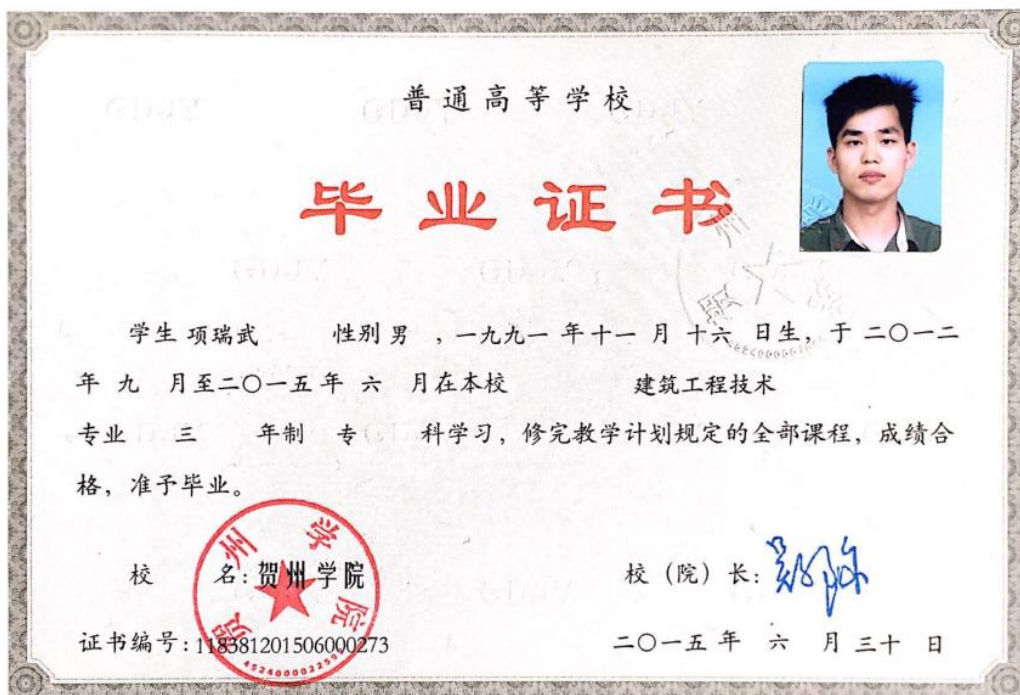 普通高等学校
毕业证书
学生 项瑞武 性别 男 ，一九九一 年 十一 月 十六 日生，于 二〇一二
年 九 月至二〇一五年 六 月在本校 建筑工程技术
专业 三 年制 专 科学习，修完教学计划规定的全部课程，成绩合
格，准予毕业。
校 名：贺州学院
校（院）长：
证书编号：118381201506000273
二〇一五 年 六 月 三十 日
贺州学院